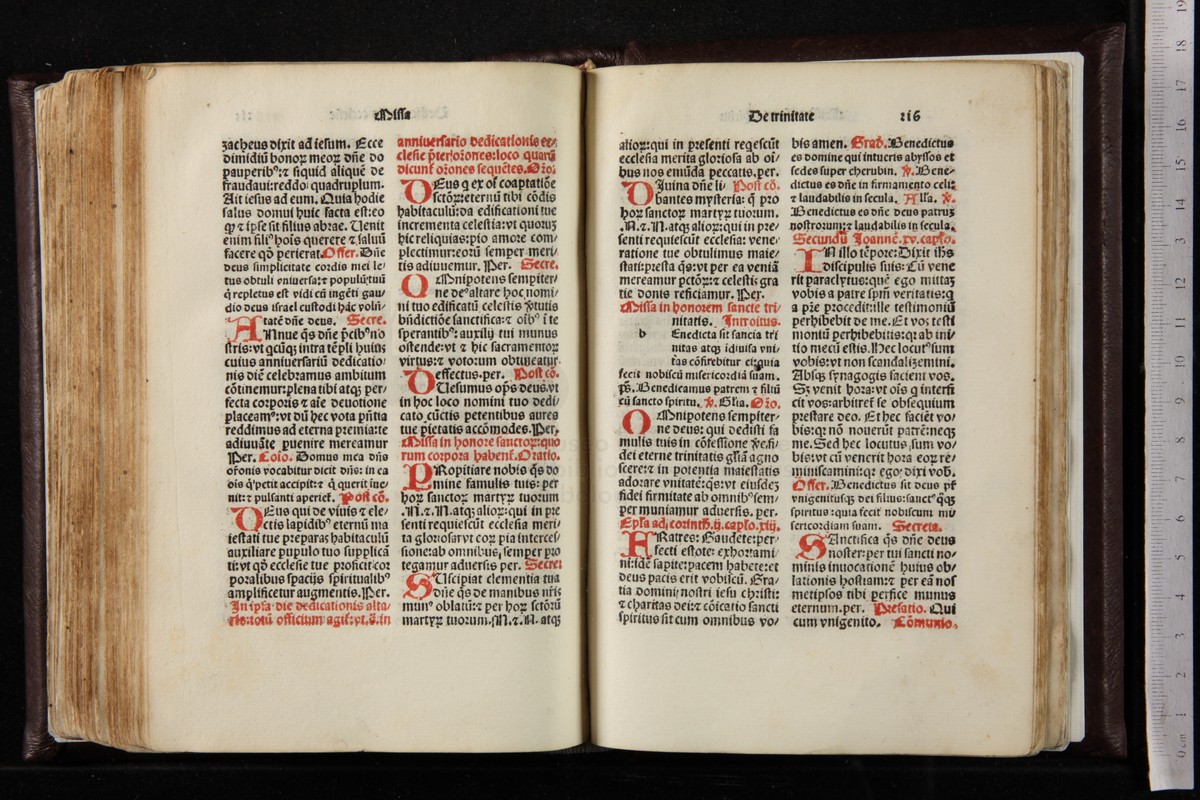 Missa
zacheus dixit ad iesum. Ecce
dimidiū bonoꝝ meoꝝ dñe do
pauperibꝰ: ⁊ siquid aliquē de
fraudaui: reddo quadruplum.
Ait iesus ad eum. Quia hodie
salus domui huic facta est: eo
ꝙ ⁊ ipse sit filius abrae. Uenit
enim filiꝰ hoīs querere ⁊ saluū
facere qð perierat. Offer. Dñe
deus simplicitate cordis mei le/
tus obtuli vniuersa: ⁊ populū tuū
q̄ repletus est vidi cū ingēti gau/
dio deus israel custodi hāc volū/
tatē dñe deus. Secre.
ANnue qs dñe p̄cibꝰ no
stris: vt qcūqꝫ intra tēpli huiꝰ
cuius anniuersariū dedicatio/
nis diē celebramus ambitum
cōtinemur: plena tibi atqꝫ per/
fecta corporis ⁊ aīe deuotione
placeamꝰ: vt dū hec vota pn̄tia
reddimus ad eterna premia: te
adiuuāte puenire mereamur
Per. Cōio. Domus mea dn̄s
orōnis vocabitur dicit dn̄s: in ea
oīs q̄ petit accipit: ⁊ q̄ querit iue/
nit: ⁊ pulsanti aperieť. Post cō.
DEus qui de viuis ⁊ ele/
ctis lapidibꝰ eternū ma
iestati tue preparas habitaculū
auxiliare pupulo tuo supplicā
ti: vt qð ecclesie tue proficit cor
poralibus spacijs spiritualibꝰ
amplificetur augmentis. Per.
In ipsa die dedicationis alta/
ris: totū officium agiť: vt. s̄. in
anniuersario dedicationis ec/
clesie p̄ter orōnes: loco quarū
dicunť orōnes sequētes. Orō.
DEus q ex oī coaptatiōe
sctōꝝ: eternū tibi cōdis
habitaculū: da edificationi tue
incrementa celestia: vt quoruꝫ
hic reliquias: pio amore com/
plectimur: eorū semper meri/
tis adiuuemur. Per. Secre.
OMnipotens sempiter/
ne deꝰ altare hoc nomi/
ni tuo edificatū celestis v̓tutis
bn̄dictiōe sanctifica: ⁊ oībꝰ ī te
sperantibꝰ: auxilij tui munus
ostende: vt ⁊ hic sacramentoꝝ
virtus: ⁊ votorum obtineatur
effectus. per. Post cō.
DUlesumus op̄s deus: vt
in hoc loco nomini tuo dedi/
cato cūctis petentibus aures
tue pietatis accōmodes. Per.
Missa in honore sanctoꝝ: quo
rum corpora habent̃. Oratio.
PRopitiare nobis qs do
mine famulis tuis: per
hoꝝ sanctoꝝ martyꝝ tuorum
.N. ⁊. N. atqꝫ alioꝝ: qui in pre
senti requiescūt ecclesia meri/
ta gloriosa: vt eoꝝ pia interces/
sione: ab omnibus semper pro
tegamur aduersis per. Secre:
SUscipiat clementia tua
dñe qs de manibus nr̄is
munꝰ oblatū: ⁊ per hoꝝ sctōrū
martyꝝ tuorum. N. ⁊. N. atqꝫ
De trinitate 216
alioꝝ: qui in presenti reqescūt
ecclesia merita gloriosa ab oī/
bus nos emūda peccatis. per.
DIuina dñe li/ Post cō.
bantes mysteria: q̄ pro
hoꝝ sanctoꝝ martyꝝ tuorum.
.N. ⁊. N. atqꝫ alioꝝ: qui in pre/
senti requiescūt ecclesia: vene/
ratione tue obtulimus maie/
stati: presta qs: vt per ea veniā
mereamur pctōꝝ: ⁊ celestis gra
tie donis reficiamur. Per.
Missa in honorem sancte tri/
nitatis. Introitus.
b Enedicta sit sancta tri
nitas atqꝫ idiuisa vni/
tas cōfitebitur ei: quia
fecit nobiscū misericordiā suam.
ps̄. Benedicamus patrem ⁊ filiū
cū sancto spiritu. v̓. Glia. Orō.
OMnipotens sempiter/
ne deus: qui dedisti fa
mulis tuis in cōfessione ve. fi/
dei eterne trinitatis gliā agno
scere: ⁊ in potentia maiestatis
adorare vnitatē: qs: vt eiusdeꝫ
fidei firmitate ab omnibꝰ sem/
per muniamur aduersis. per.
Epla ad. corinth. ij. caplo. xiij.
FRatres: Gaudete: per/
fecti estote: exhortami/
ni: idē sapite: pacem habete: et
deus pacis erit vobiscū. Gra/
tia domini nostri iesu christi:
⁊ charitas dei: ⁊ cōicatio sancti
spiritus sit cum omnibus vo/
bis amen. Grad. Benedictus
es domine qui intueris abyssos et
sedes super cherubin. v̓. Bene/
dictus es dñe in firmamento celi:
⁊ laudabilis in secula. Alla. v̓.
Benedictus es dñe deus patruꝫ
nostrorum: ⁊ laudabilis in secula.
Secundū Joannē. xv. caplo.
IN illo tēpore: Dixit ihs
discipulis suis: Cū vene
rit paraclytus: quē ego mittaꝫ
vobis a patre spm̄ veritatis: q
a pr̄e procedit: ille testimoniū
perhibebit de me. Et vos testi
moniū perhibebitis: qr ab ini/
tio mecū estis. Hec locutꝰ sum
vobis: vt non scandalizemini.
Absqꝫ synagogis facient vos.
Sꝫ venit hora: vt oīs q interfi
cit vos: arbitret̃ se obsequium
prestare deo. Et hec faciēt vo/
bis: qr nō nouerūt patrē: neqꝫ
me. Sed hec locutus sum vo/
bis: vt cū venerit hora eoꝝ re/
miniscamini: qr ego dixi vob̄.
Offer. Benedictus sit deus pr̄
vnigenitusqꝫ dei filius: sanctꝰ q̄qꝫ
spiritus: quia fecit nobiscum mi
sericordiam suam. Secreta.
SAnctifica qs dñe deus
noster: per tui sancti no/
minis inuocationē huius ob/
lationis hostiam: ⁊ per eā nos
metipsos tibi perfice munus
eternum. per. Prefatio. Qui
cum vnigenito. Cōmunio.